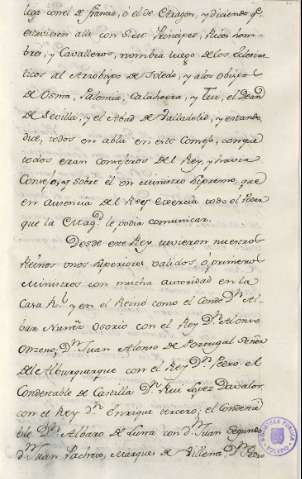 liga con el de francia, ó el de Aragon, y diciendo qe.
estuviesen alli con Siete Principes, Ricos hom
bres, y Cavalleros, nombra luego de los Eclesias
ticos al Arzobispo de Toledo, y a los obispos
de Osma, Palencia, Calahorra, y Tui, el Dean
de Sevilla, y el Abad de Valladolid, y
dice, todos en abla en este Consejo, conque
todos eran Consejeros del Rey, y havia
Consejo, y sobre él un ministro supremo, que
en ausencia del Rey exercia todo el Poder
que la Magd. le podia comunicar.
Desde este Rey tuvieron nuestros
Reinos unos superiores validos, o primeros
Ministros con mucha autoridad en la
Casa Rl. y en el Reino como el Conde Dn. Al-
bar Nuñez Osorio con el Rey Dn. Alonso
Onzeno, Dn. Juan Alonso de Portugal Señor
de Alburquerque con el Rey Dn. Pedro el
Condestable de Castilla Dn. Rui Lopez Davalos,
con el Rey Dn. Enrique tercero, el Condesta
ble Dn. Albaro de Luna con Dn. Juan Segundo
Dn. Juan Pacheco, Marques de Villena, Dn. Pedro